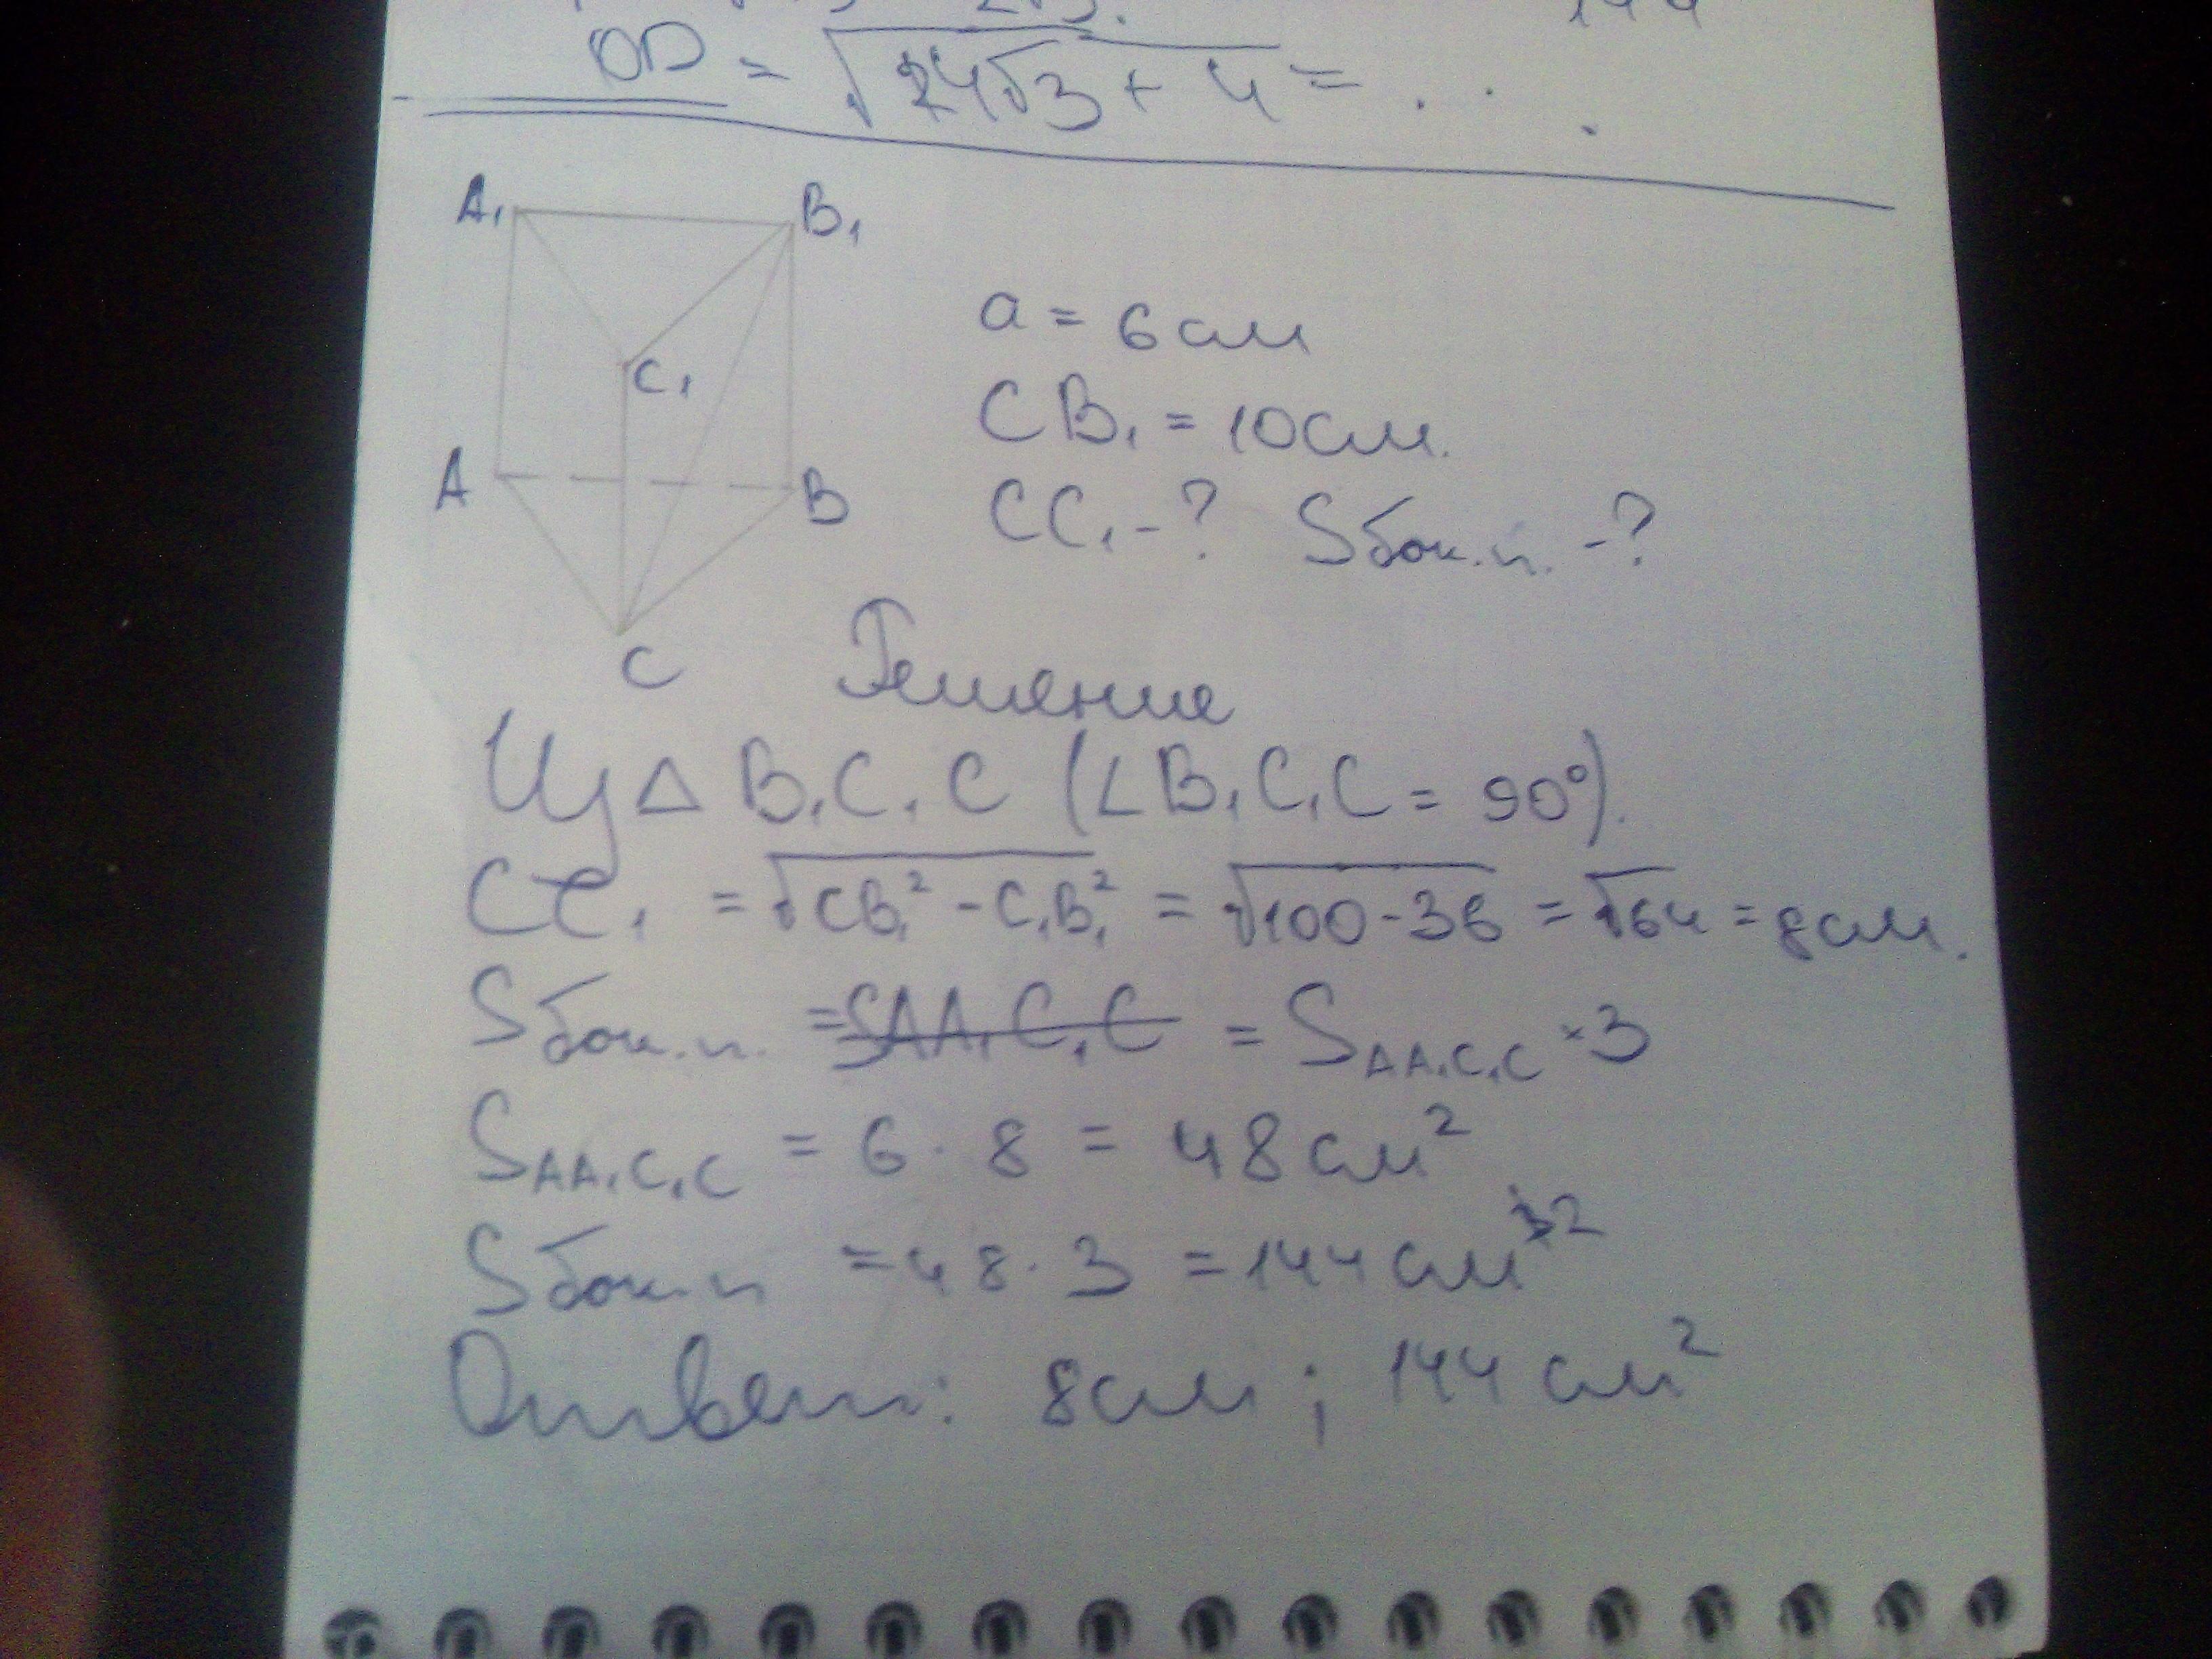 OD = √(24√3 + 4) = . . .
A₁ B₁
a = 6 см
C₁
CB₁ = 10 см.
A B
CC₁ - ? Sбок.п. - ?
C
Решение
Из △ B₁C₁C (∠B₁C₁C = 90°).
CC₁ = √(CB₁² - C₁B₁²) = √(100-36) = √64 = 8 см.
Sбок.п. = SAA₁C₁C = SAA₁C₁C × 3
SAA₁C₁C = 6 · 8 = 48 см²
Sбок.п = 48 · 3 = 144 см²
Ответ: 8 см ; 144 см²